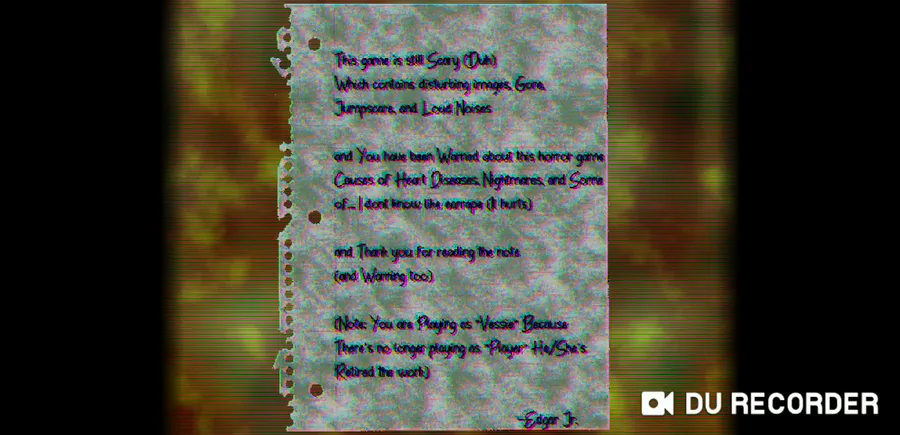 This game is still Scary (Duh)
Which contains disturbing images, Gore,
Jumpscare, and Loud Noises
and You have been Warned about this horror game
Causes of Heart Diseases, Nightmares, and Some
of... I dont know like earrape (it hurts)
and Thank you for reading the note
(and Warning too)
(Note: You are Playing as "Vessie" Because
There's no longer playing as "Player" He/She's
Retired the work)
-Edgar Jr.
DU RECORDER